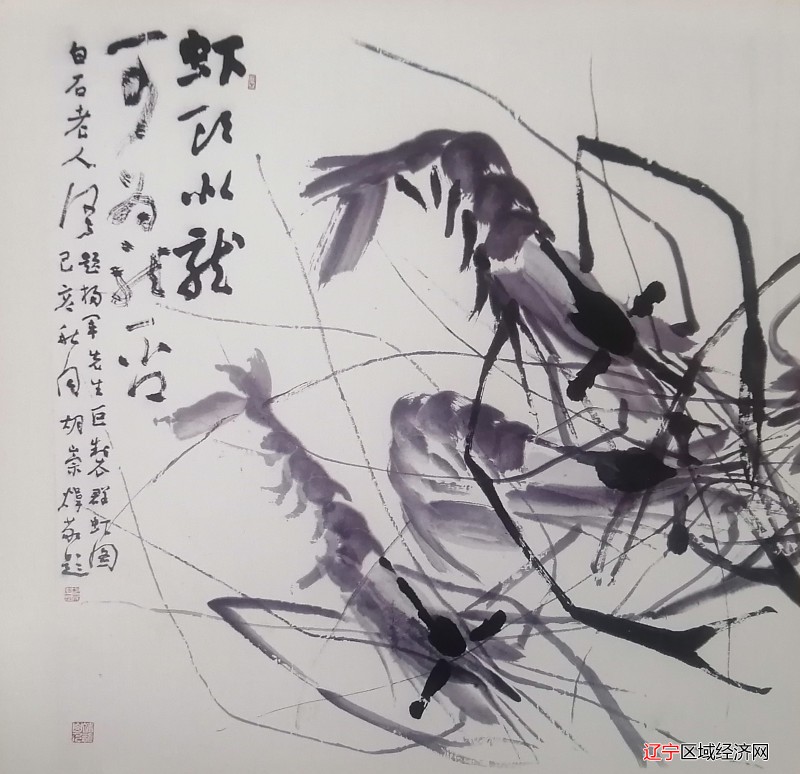 虾頭似龍
可为龍否
白石老人
题杨军先生巨製群虾图
己亥秋月胡崇煒敬题
辽宁区域经济网